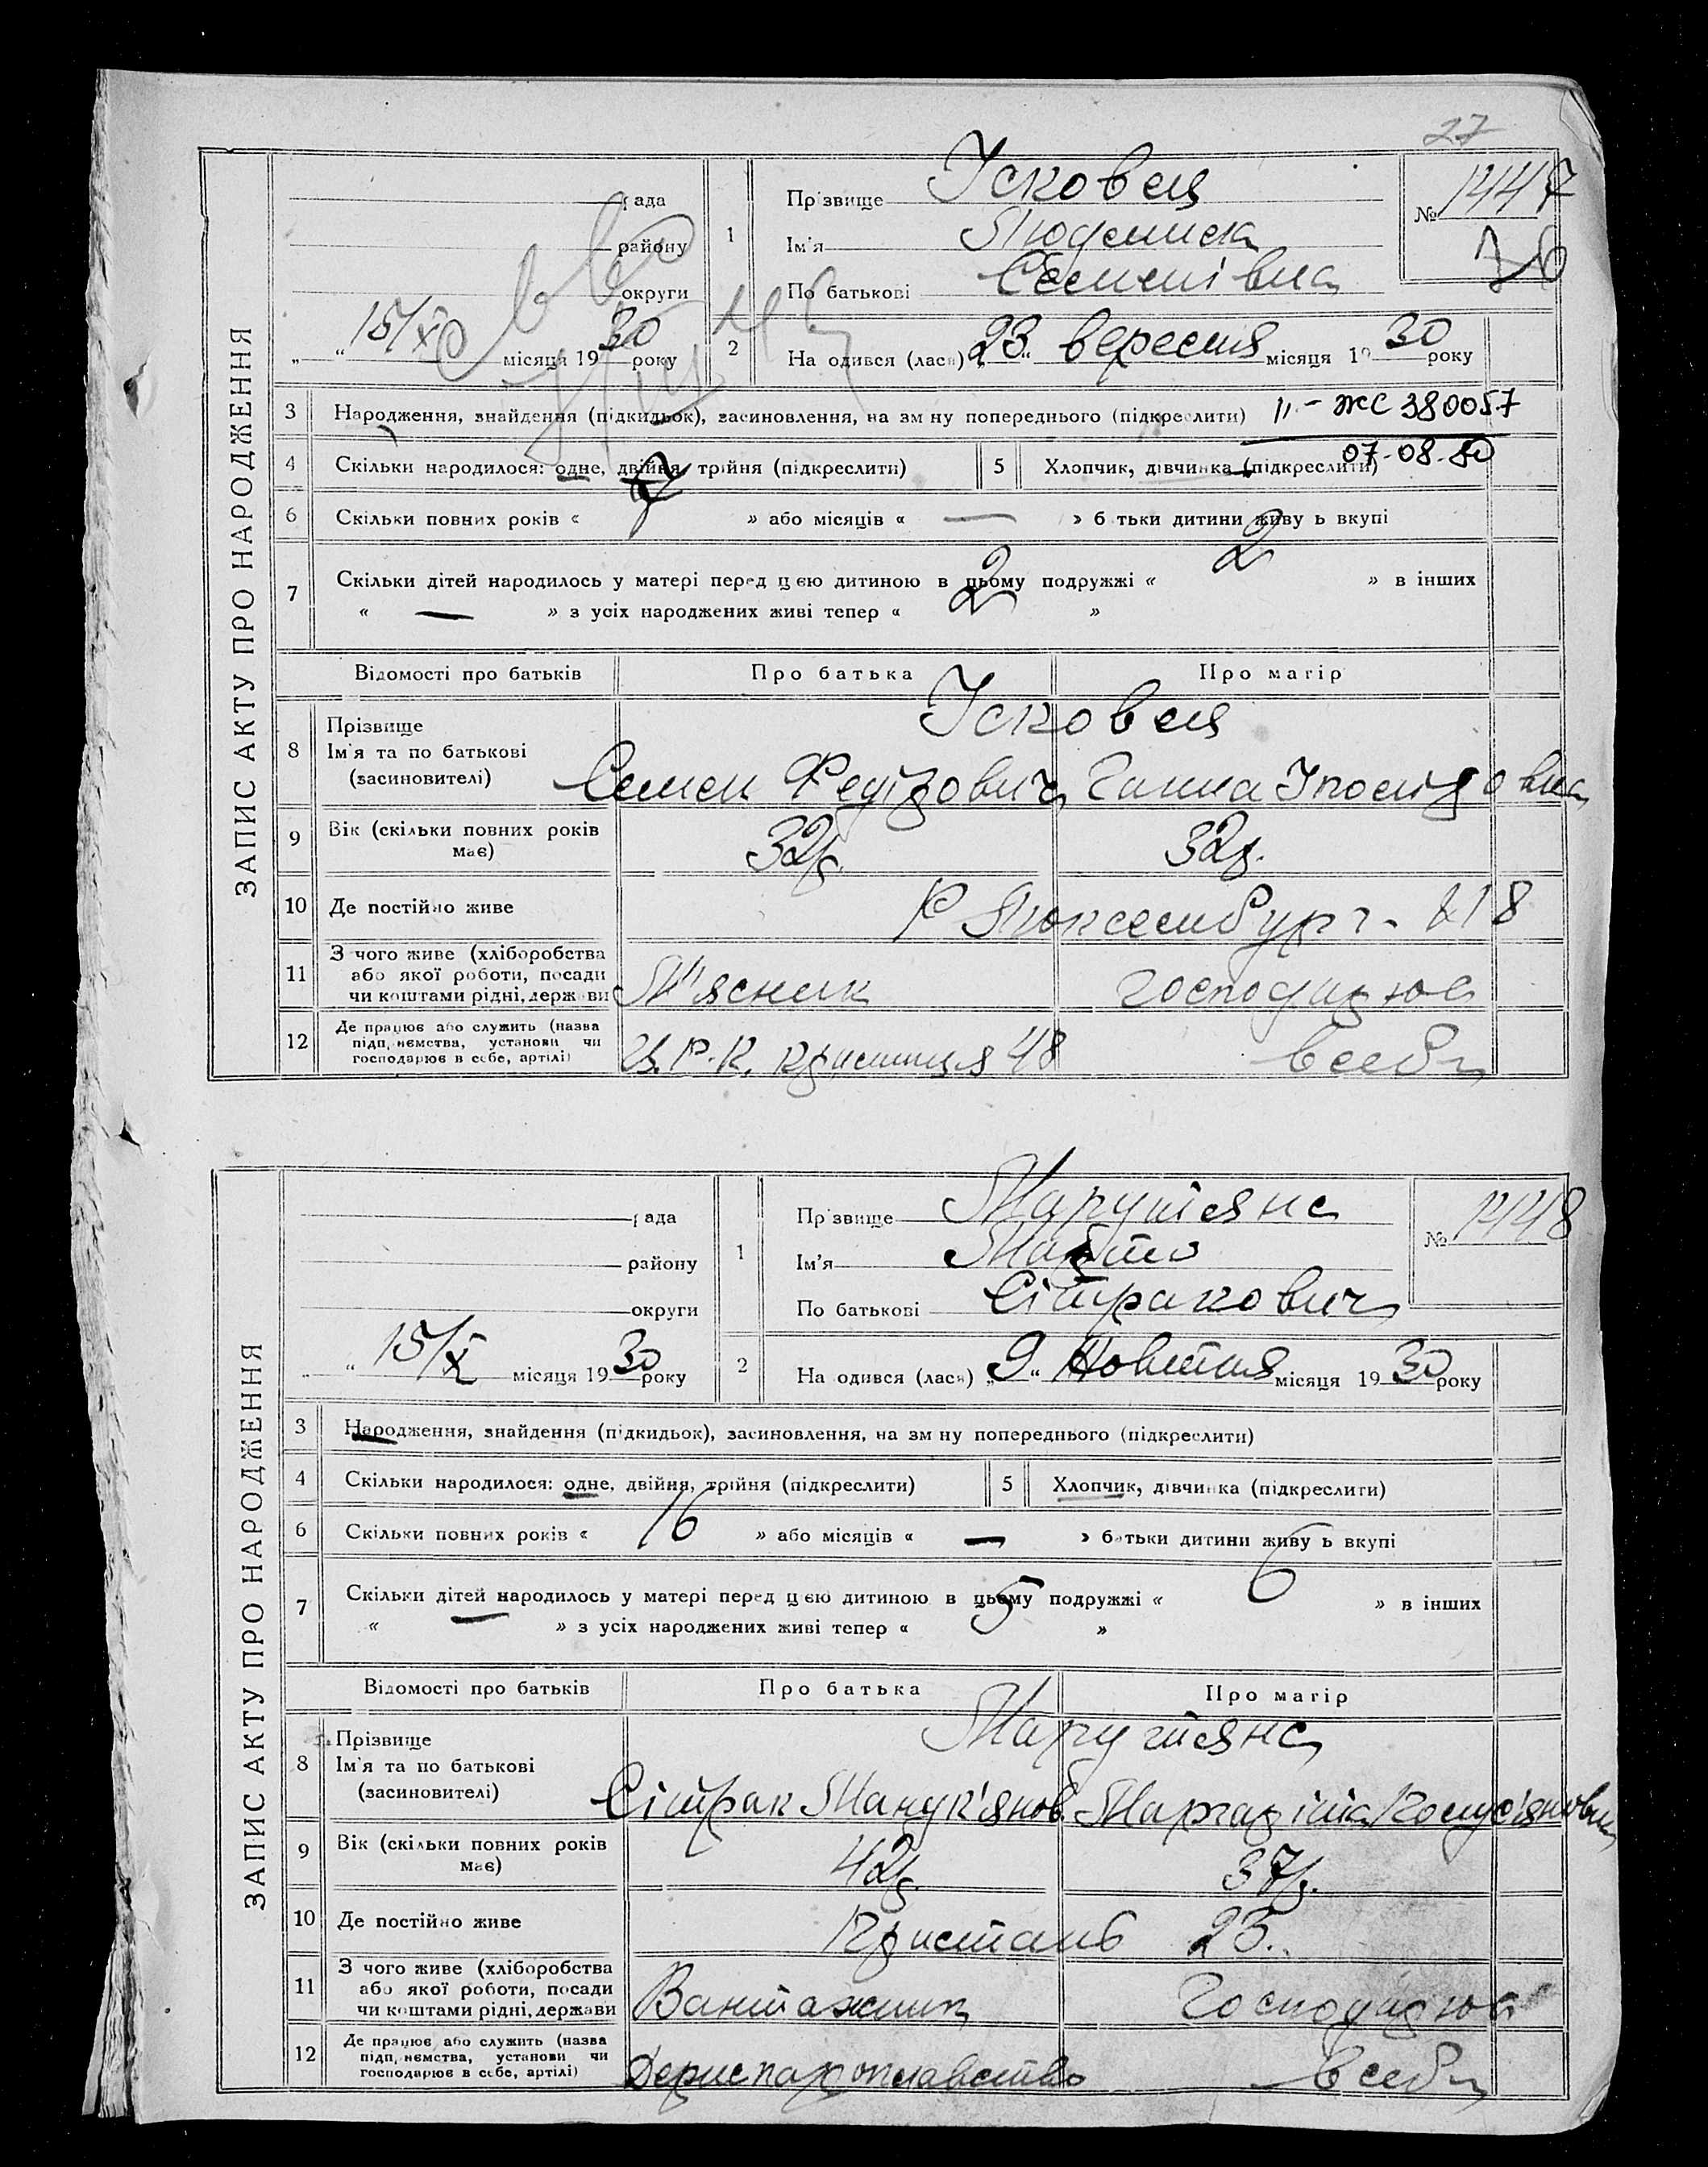 27
ЗАПИС АКТУ ПРО НАРОДЖЕННЯ
рада
району
округи
„ “ 15/X місяця 1930 року
1
Прізвище Ісковея
Ім'я Людмила
По батькові Семенівна
№ 1447
2
На одився (лася) „23“ вересня місяця 1930 року
3 Народження, знайдення (підкидьок), засиновлення, на зм ну попереднього (підкреслити)
II - ЖС 380057
07-08-80
4 Скільки народилося: одне, двійня, трійня (підкреслити)
5 Хлопчик, дівчинка (підкреслити)
6 Скільки повних років « 7 » або місяців « — » б тьки дитини живу ь вкупі
7 Скільки дітей народилось у матері перед цією дитиною в цьому подружжі « 2 » в інших
« — » з усіх народжених живі тепер « 2 »
Відомості про батьків Про батька Про матір
8 Прізвище
Ім'я та по батькові
(засиновителі)
Ісковея
Семен Федорович Ганна
9 Вік (скільки повних років має) 32р. 32р.
10 Де постійно живе Р Люксембург - 18
11 З чого живе (хліборобства
або якої роботи, посади
чи коштами рідні, держави
М'ясник господарює
12 Де працює або служить (назва
підприємства, установи чи
господарює в себе, артілі)
Ц.Р.К. крамниця 48 в себе
ЗАПИС АКТУ ПРО НАРОДЖЕННЯ
рада
району
округи
„ “ 15/X місяця 1930 року
1
Прізвище Марутіянс
Ім'я
По батькові Сітракович
№ 1448
2
На одився (лася) „9“ Жовтня місяця 1930 року
3 Народження, знайдення (підкидьок), засиновлення, на зм ну попереднього (підкреслити)
4 Скільки народилося: одне, двійня, трійня (підкреслити)
5 Хлопчик, дівчинка (підкреслити)
6 Скільки повних років « 16 » або місяців « — » батьки дитини живу ь вкупі
7 Скільки дітей народилось у матері перед цією дитиною в цьому подружжі « 6 » в інших
« — » з усіх народжених живі тепер « 5 »
Відомості про батьків Про батька Про матір
8 Прізвище
Ім'я та по батькові
(засиновителі)
Марутіянс
Сітрак Манук'янов. Маргаріта
9 Вік (скільки повних років має) 42р. 37р.
10 Де постійно живе Пристань 23.
11 З чого живе (хліборобства
або якої роботи, посади
чи коштами рідні, держави
Вантажник Господарює
12 Де працює або служить (назва
підприємства, установи чи
господарює в себе, артілі)
Держпароплавство в себе